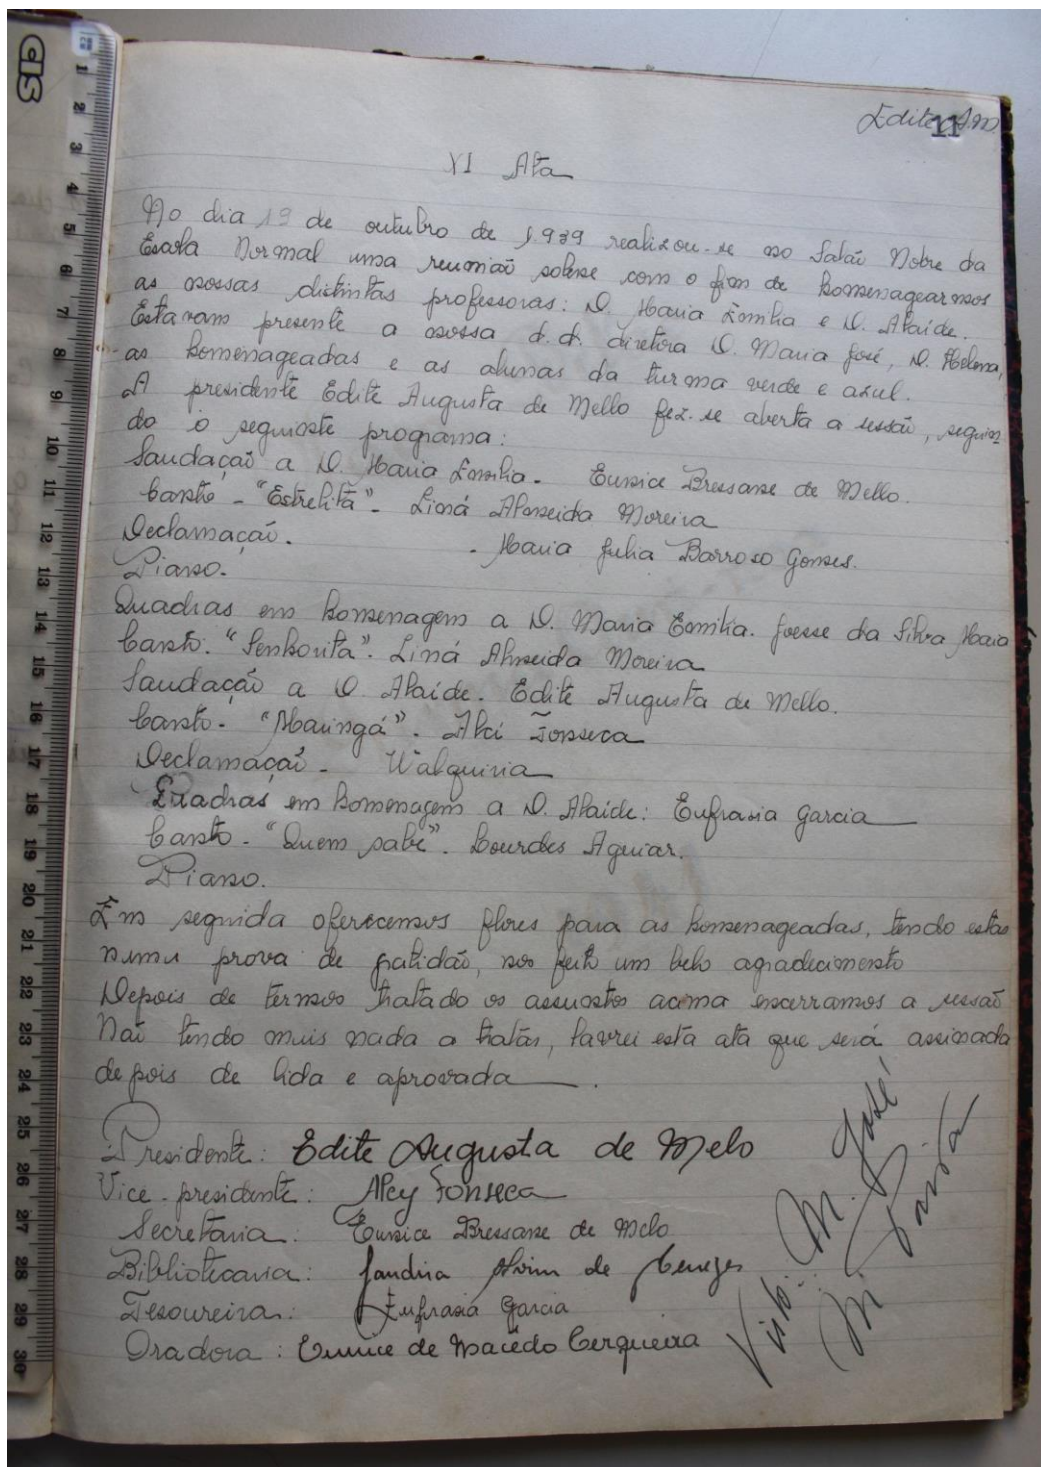 Edite A.M
11
XI Ata
No dia 19 de outubro de 1.939 realizou-se no Salão Nobre da
Escola Normal uma reunião solene com o fim de homenagearmos
as nossas distintas professoras: D. Maria Emilia e D. Alaíde.
Estavam presente a nossa d.d. diretora D. Maria José, D. Helena,
as homenageadas e as alunas da turma verde e azul.
A presidente Edite Augusta de Mello fez-se aberta a sessão, seguin
do o seguinte programa:
Saudação a D. Maria Emilia - Eunice Bressane de Mello.
Canto - "Estrelita" - Liná Almeida Moreira
Declamação. - Maria Julia Barroso Gomes.
Piano.
Quadras em homenagem a D. Maria Emilia. Joesse da Silva Maia
Canto. "Senhorita". Liná Almeida Moreira
Saudação a D. Alaíde. Edite Augusta de Mello.
Canto - "Maringá". Alci Fonseca
Declamação - Walquiria
Quadras em homenagem a D. Alaide: Eufrasia Garcia
Canto - "Quem sabe". Lourdes Aguiar.
Piano.
Em seguida oferecemos flores para as homenageadas, tendo estas
numa prova de gratidão, nos feito um belo agradecimento
Depois de termos tratado os assuntos acima encerramos a sessão
Não tendo mais nada a tratar, lavrei esta ata que será assinada
depois de lida e aprovada.
Presidente: Edite Augusta de Melo
Vice-presidente: Alcy Fonseca
Secretaria: Eunice Bressane de Melo
Bibliotecaria: Jandira Alvim de Menezes
Tesoureira: Eufrasia Garcia
Oradora: Eunice de Macêdo Cerqueira
Visto: M. José
M.
CiS
1
2
3
4
5
6
7
8
9
10
11
12
13
14
15
16
17
18
19
20
21
22
23
24
25
26
27
28
29
30